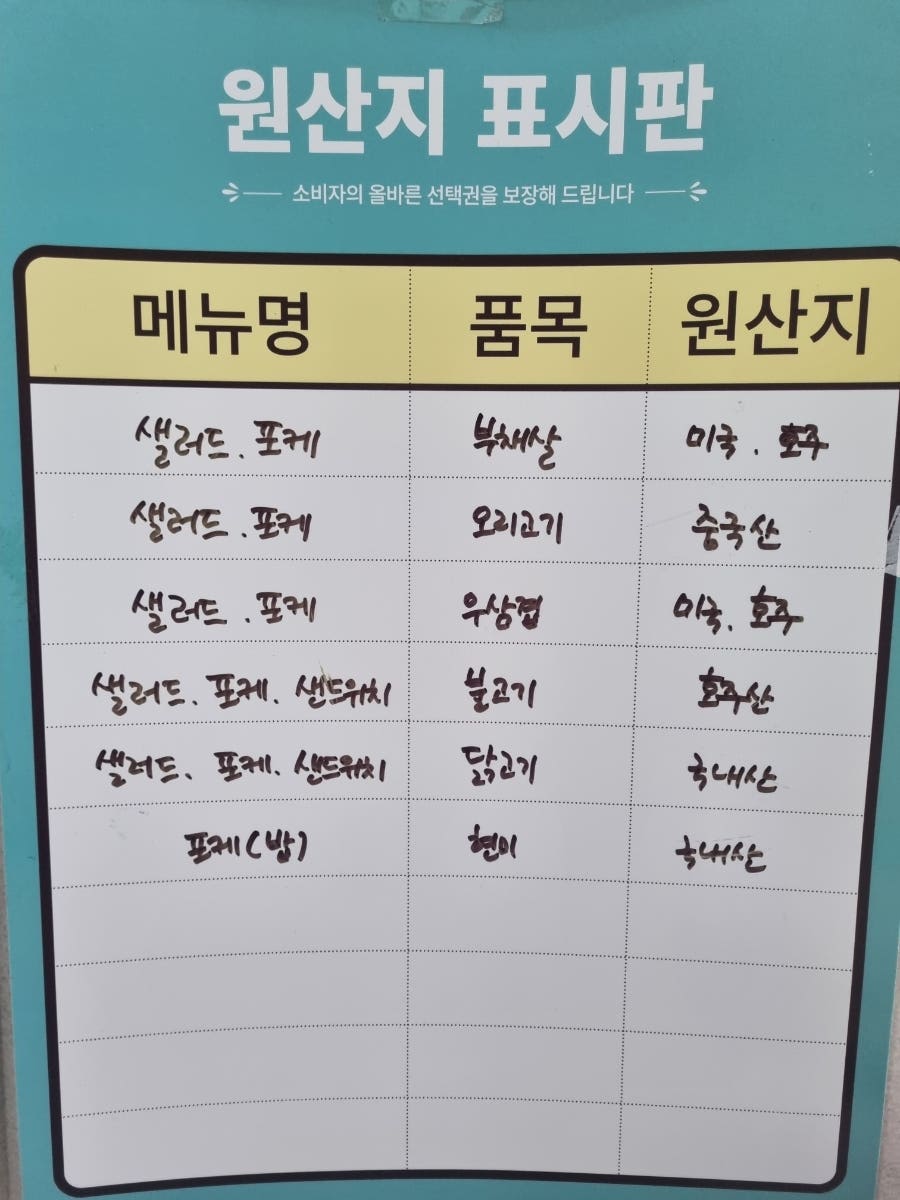 원산지 표시판
소비자의 올바른 선택권을 보장해 드립니다
메뉴명 품목 원산지
샐러드. 포케 부채살 미국. 호주
샐러드. 포케 오리고기 중국산
샐러드. 포케 우삼겹 미국. 호주
샐러드. 포케. 샌드위치 불고기 호주산
샐러드. 포케. 샌드위치 닭고기 국내산
포케(밥) 현미 국내산